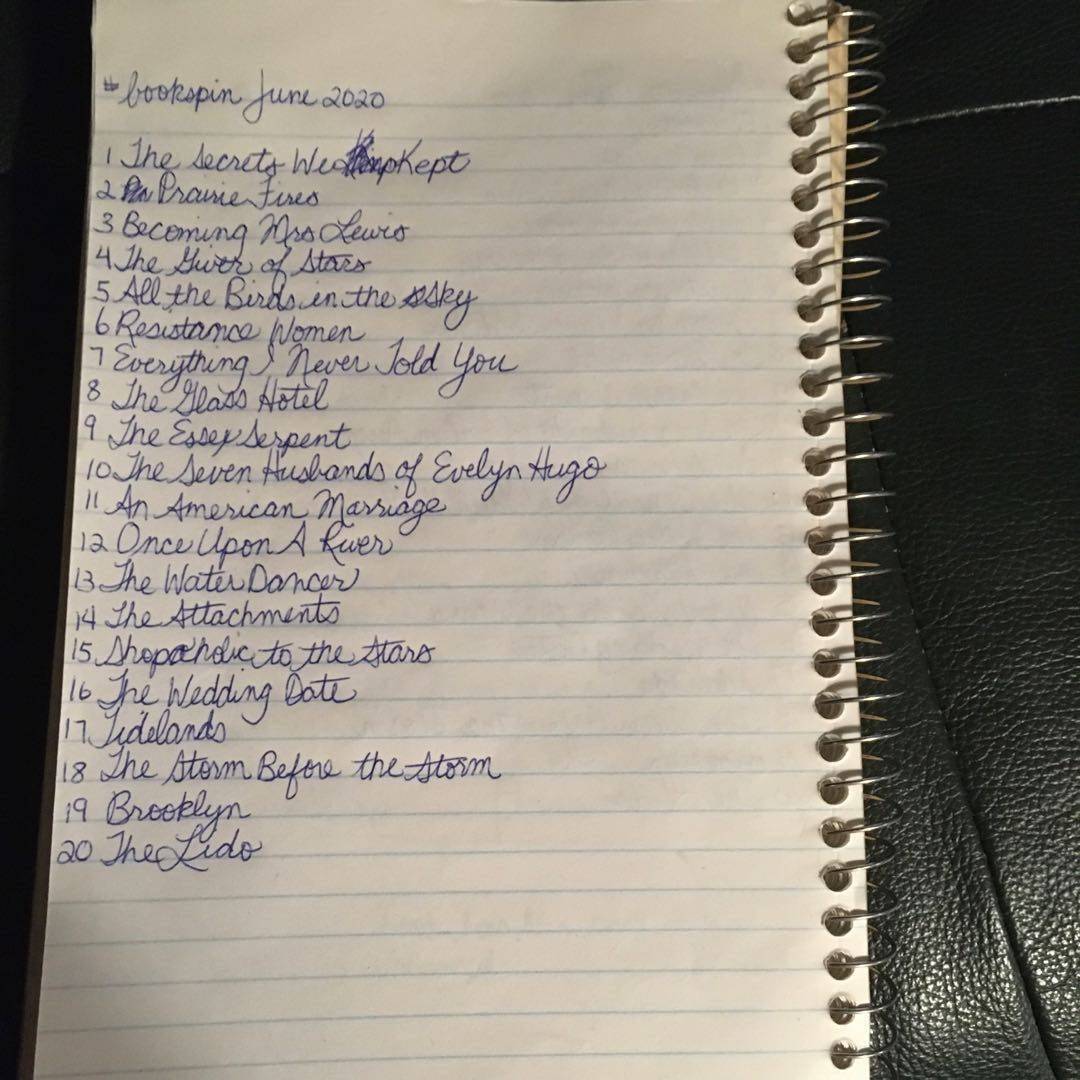 #bookspin June 2020
1 The Secrets We Kept
2 Prairie Fires
3 Becoming Mrs Lewis
4 The Giver of Stars
5 All the Birds in the Sky
6 Resistance Women
7 Everything I Never Told You
8 The Glass Hotel
9 The Essex Serpent
10 The Seven Husbands of Evelyn Hugo
11 An American Marriage
12 Once Upon A River
13 The Water Dancer
14 The Attachments
15 Shopaholic to the Stars
16 The Wedding Date
17 Tidelands
18 The Storm Before the Storm
19 Brooklyn
20 The Lido